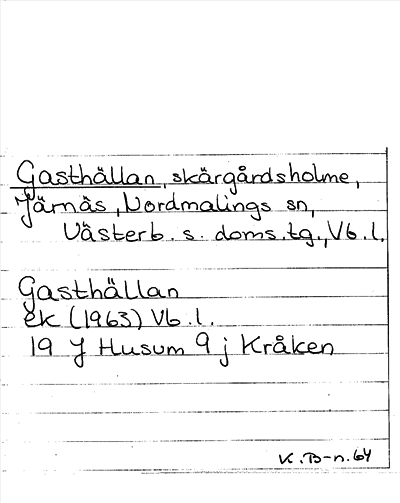 Gasthällan, skärgårdsholme,
Järnäs, Nordmalings sn,
Västerb. s. doms.tg., Vb.l.
Gasthällan
ek (1963) Vb.l.
19 J Husum 9 j Kråken
K.B-n.64